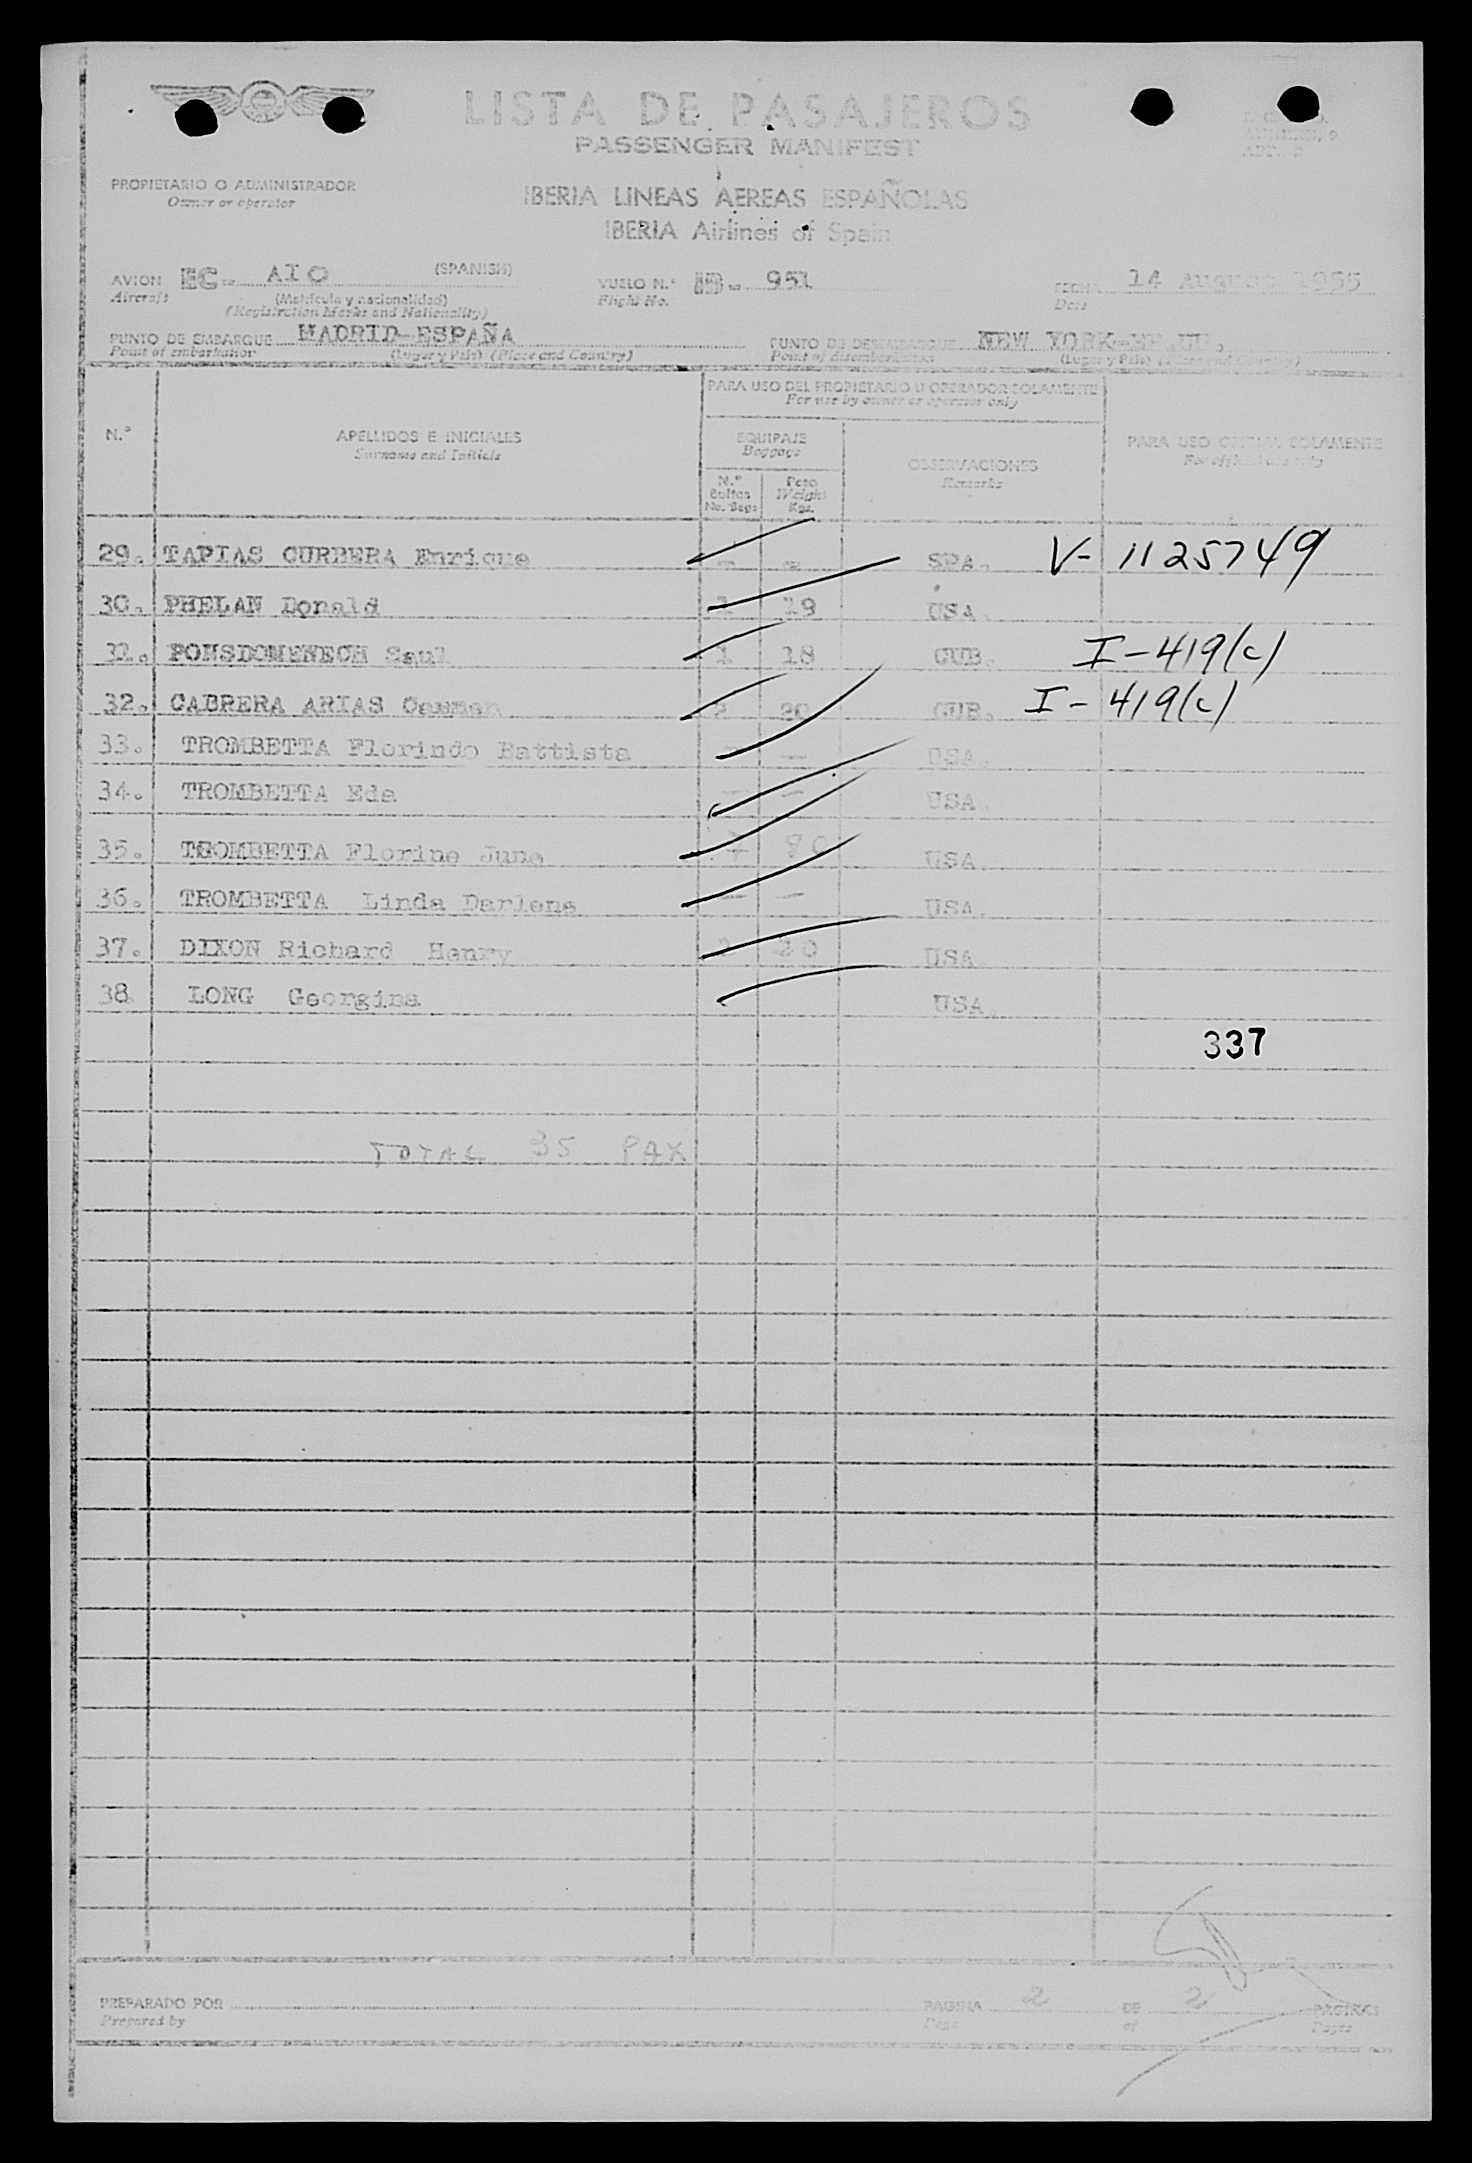 LISTA DE PASAJEROS
PASSENGER MANIFEST
PROPIETARIO O ADMINISTRADOR
Owner or operator
IBERIA LINEAS AEREAS ESPAÑOLAS
IBERIA Airlines of Spain
AVION EC- AIO (SPANISH) VUELO N.º IB- 951 FECHA 14 AUGUST 1955
Aircraft (Matrícula y nacionalidad) Flight No. Date
(Registration Marks and Nationality)
PUNTO DE EMBARQUE MADRID-ESPAÑA PUNTO DE DESEMBARQUE NEW YORK-EE.UU.
Point of embarkation (Lugar y País) (Place and Country) Point of disembarkation (Lugar y País) (Place and Country)
PARA USO DEL PROPIETARIO U OPERADOR SOLAMENTE
For use by owner or operator only
N.º APELLIDOS E INICIALES EQUIPAJE PARA USO OFICIAL SOLAMENTE
Surname and Initials Baggage For official use only
OBSERVACIONES
Remarks
N.º Bultos Peso
No. Bags Weight Kgs.
29. TAPIAS CURBERA Enrique - - SPA. V- 1125749
30. PHELAN Donald 1 19 USA.
31. PONSDOMENECH Saul 1 18 CUB. I-419(c)
32. CABRERA ARIAS Carmen 2 20 CUB. I-419(c)
33. TROMBETTA Florindo Battista - — USA.
34. TROMBETTA Eda - — USA.
35. TROMBETTA Florine June 7 80 USA.
36. TROMBETTA Linda Darlene — — USA.
37. DIXON Richard Henry 20 USA.
38 LONG Georgina USA.
337
TOTAL 35 PAX
PREPARADO POR PAGINA 2 DE 2 PAGINAS
Prepared by Page of Pages